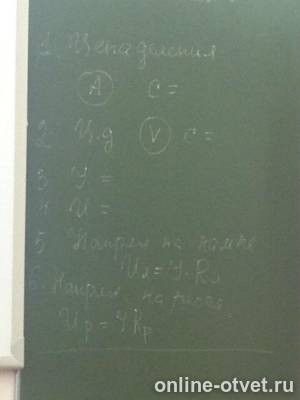 1. Цена деления
(A) C =
2. Ц.д (V) C =
3 I =
4. U =
5 Напряж на лампе
Uл = I·Rл
6. Напряж на
Uр = I Rр
online-otvet.ru